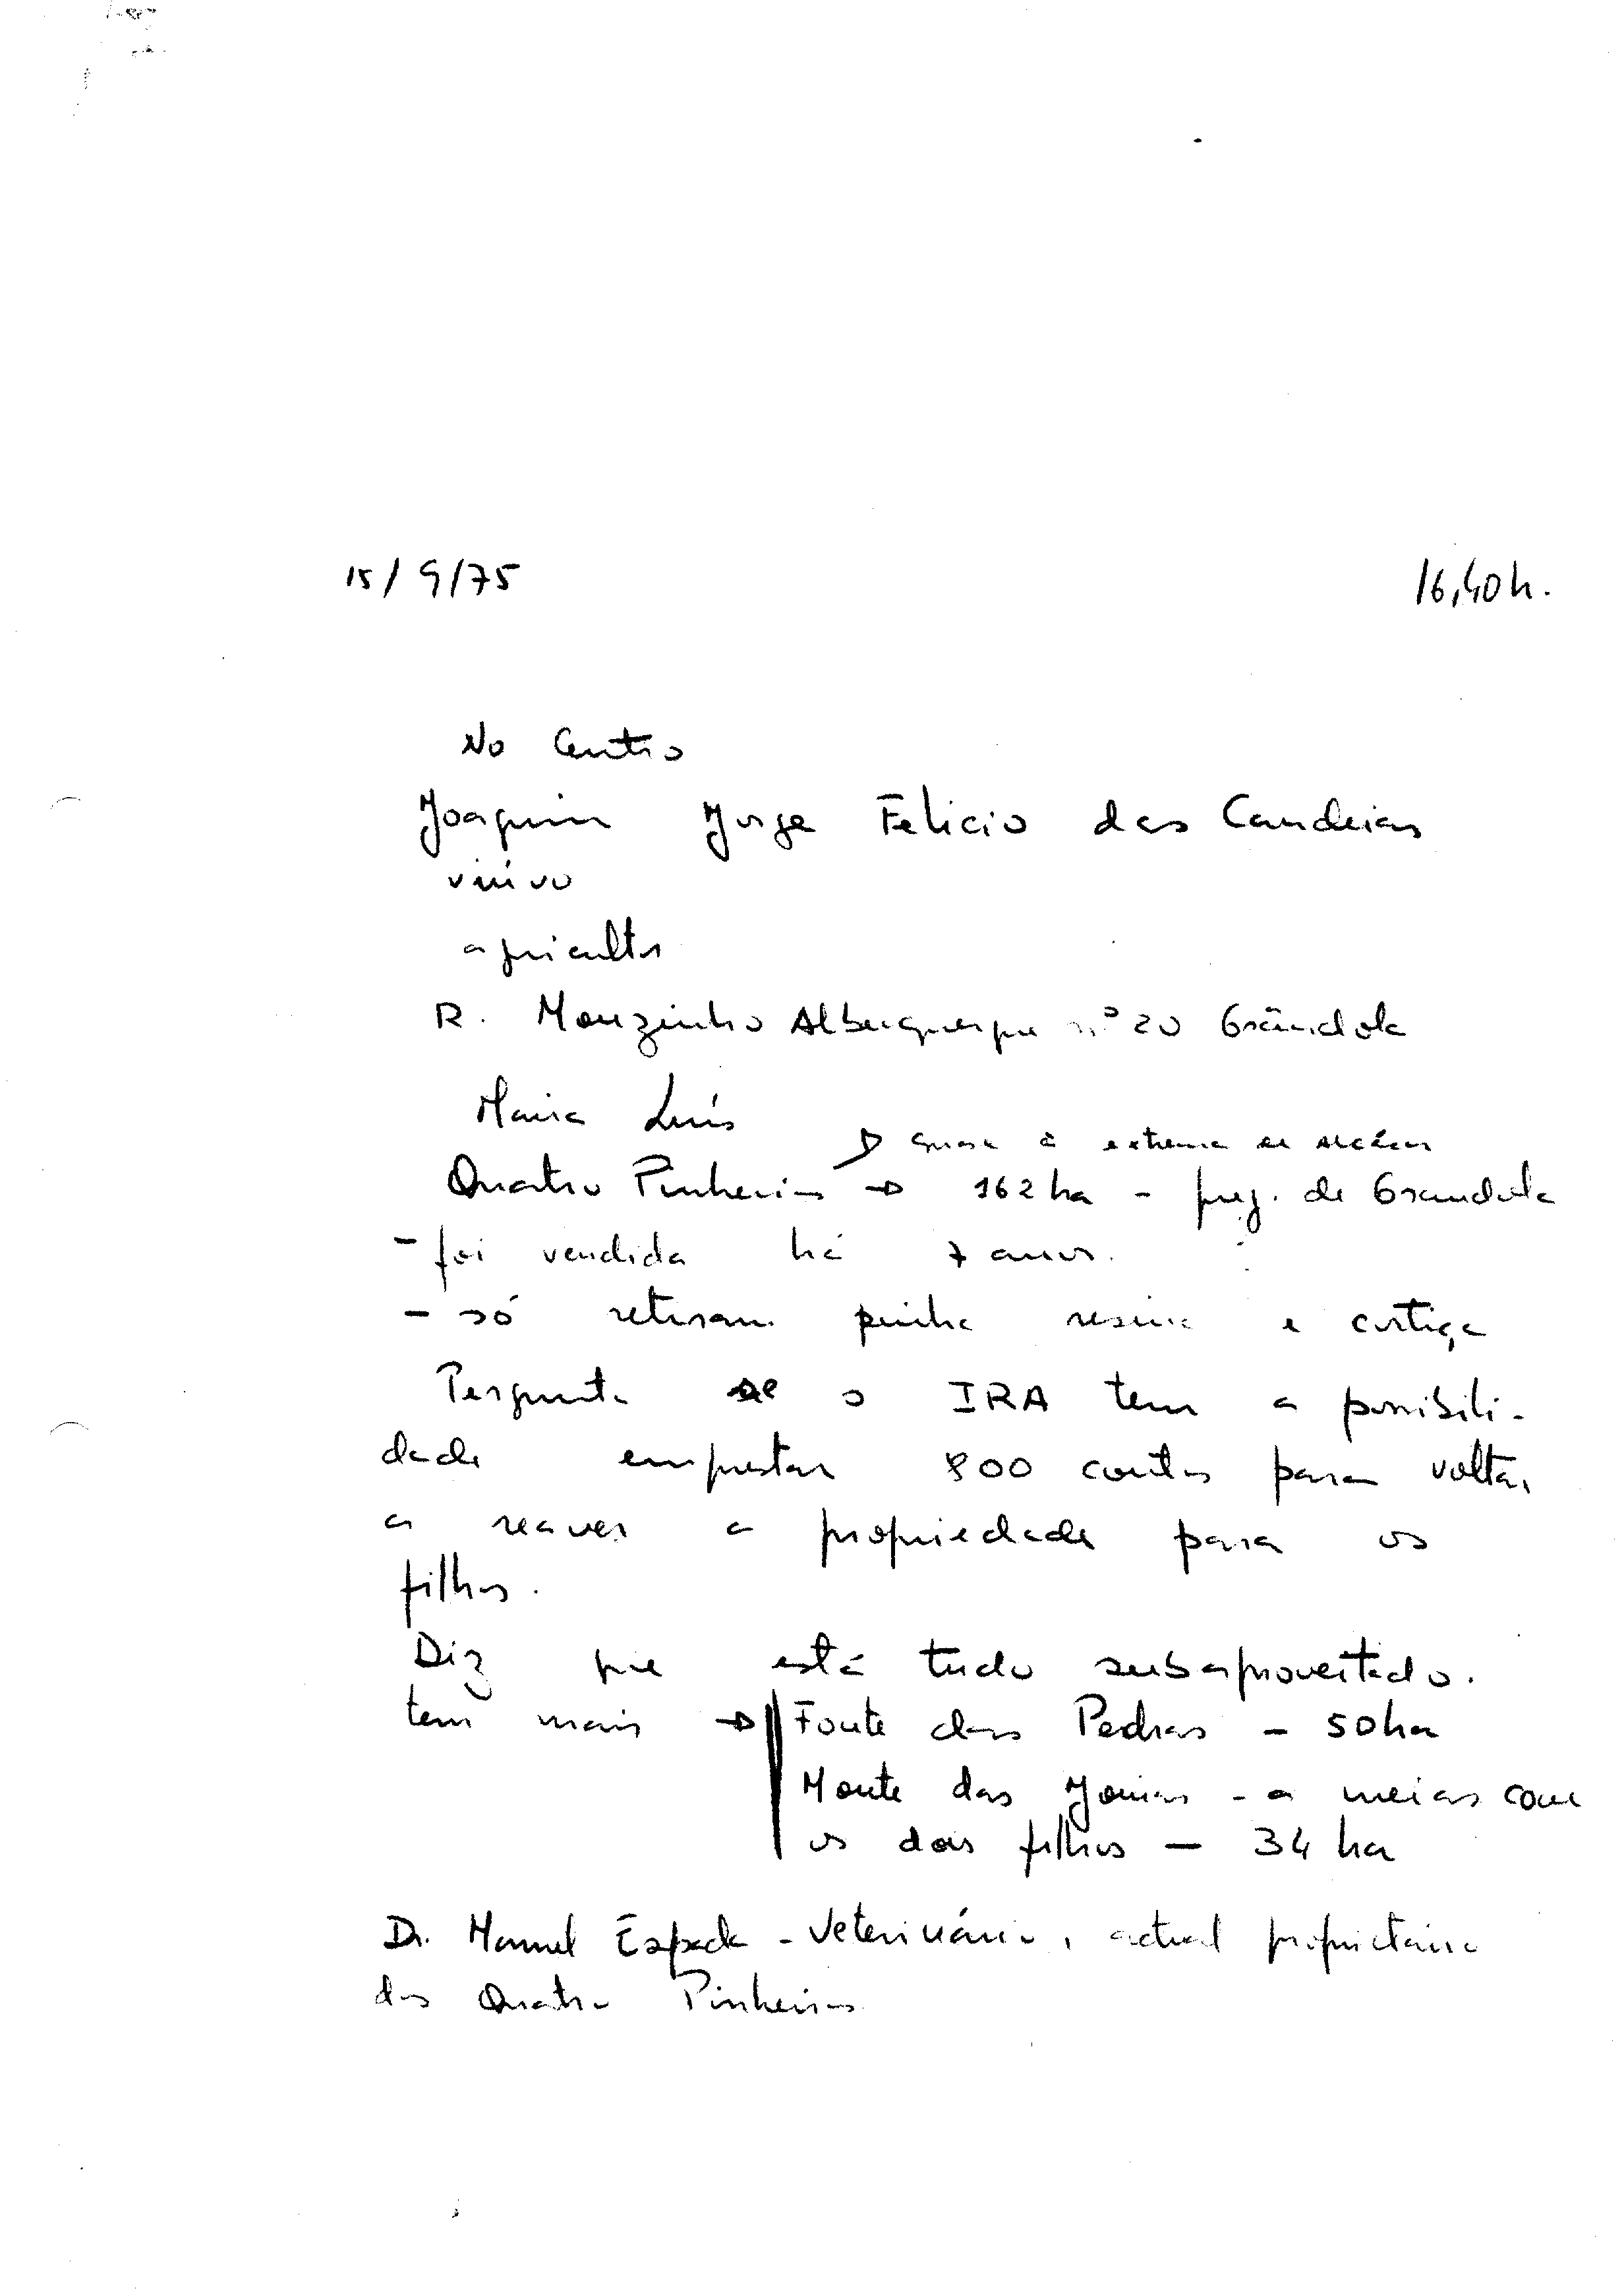 15/9/75 16,40h.
No Centro
Joaquim Jorge Felicio das Candeias
viúvo
agricultor
R. Mouzinho Albuquerque nº 20 Grândola
Maria Luís
quase à extrema de Alcácer
Quatro Pinheiros → 162 ha - freg. de Grandola
- foi vendida há 7 anos.
- só retiram pinha resina e cortiça
Pergunta se o IRA tem a possibili-
dade emprestar 800 contos para voltar
a reaver a propriedade para os
filhos.
Diz que está tudo subaproveitado.
tem mais → Fonte das Pedras - 50ha
Monte das - a meias com
os dois filhos - 34 ha
Dr. Manuel Espada - Veterinário, actual proprietário
dos Quatro Pinheiros